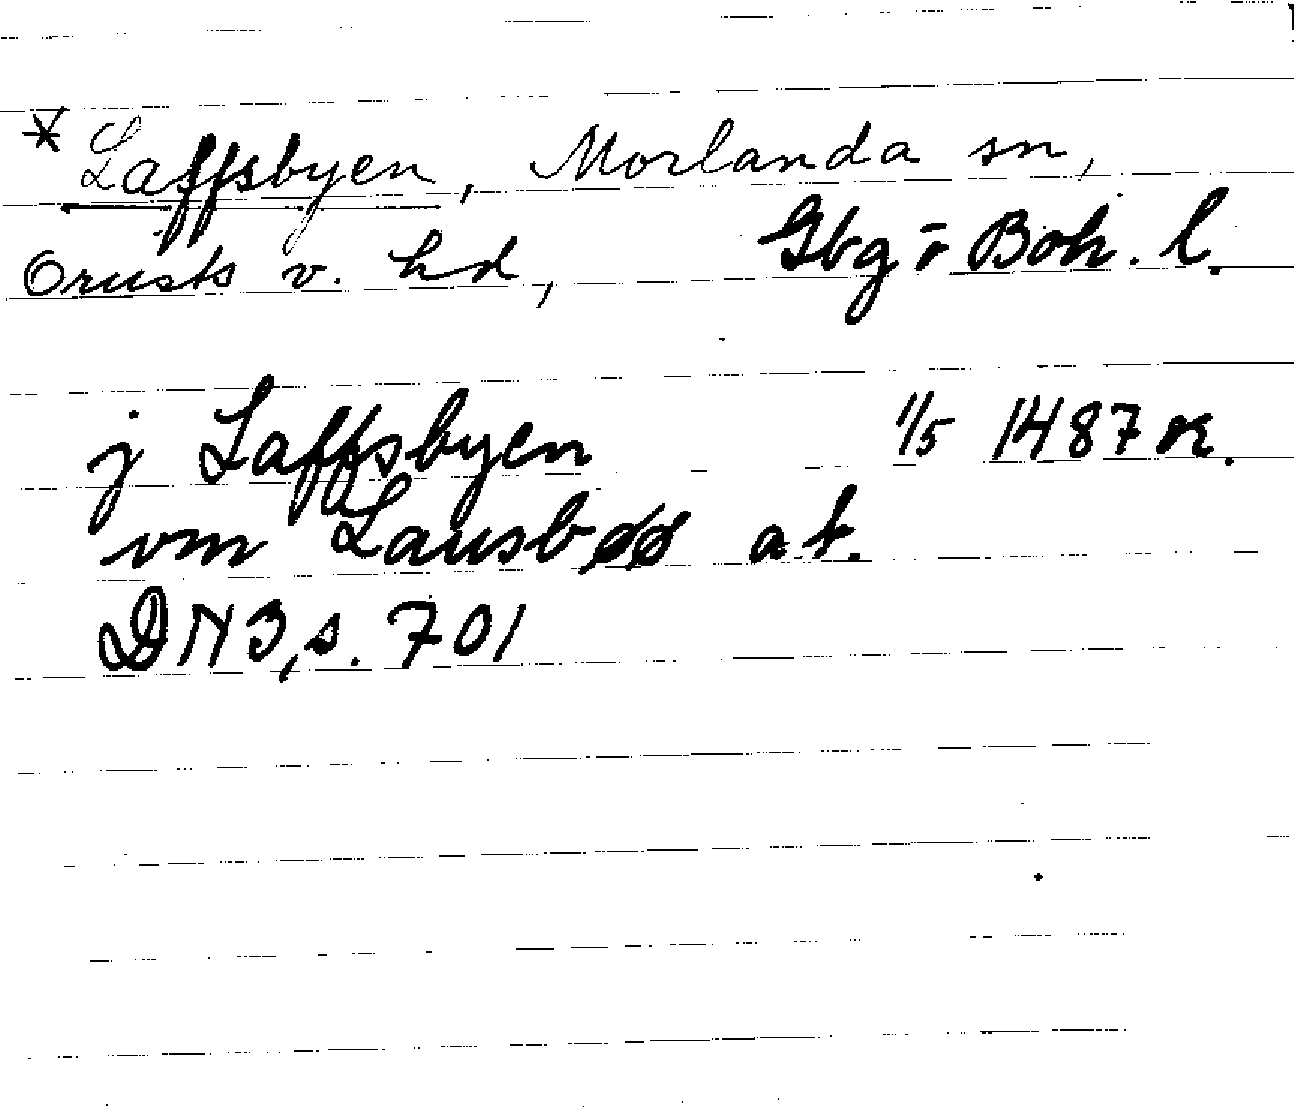 * Laffsbyen, Morlanda sn,
Orusts v. hd, Gbg o Boh. l.
j Laffsbyen 1/5 1487 or.
vm Lausbøø a t.
DN 3, s. 701